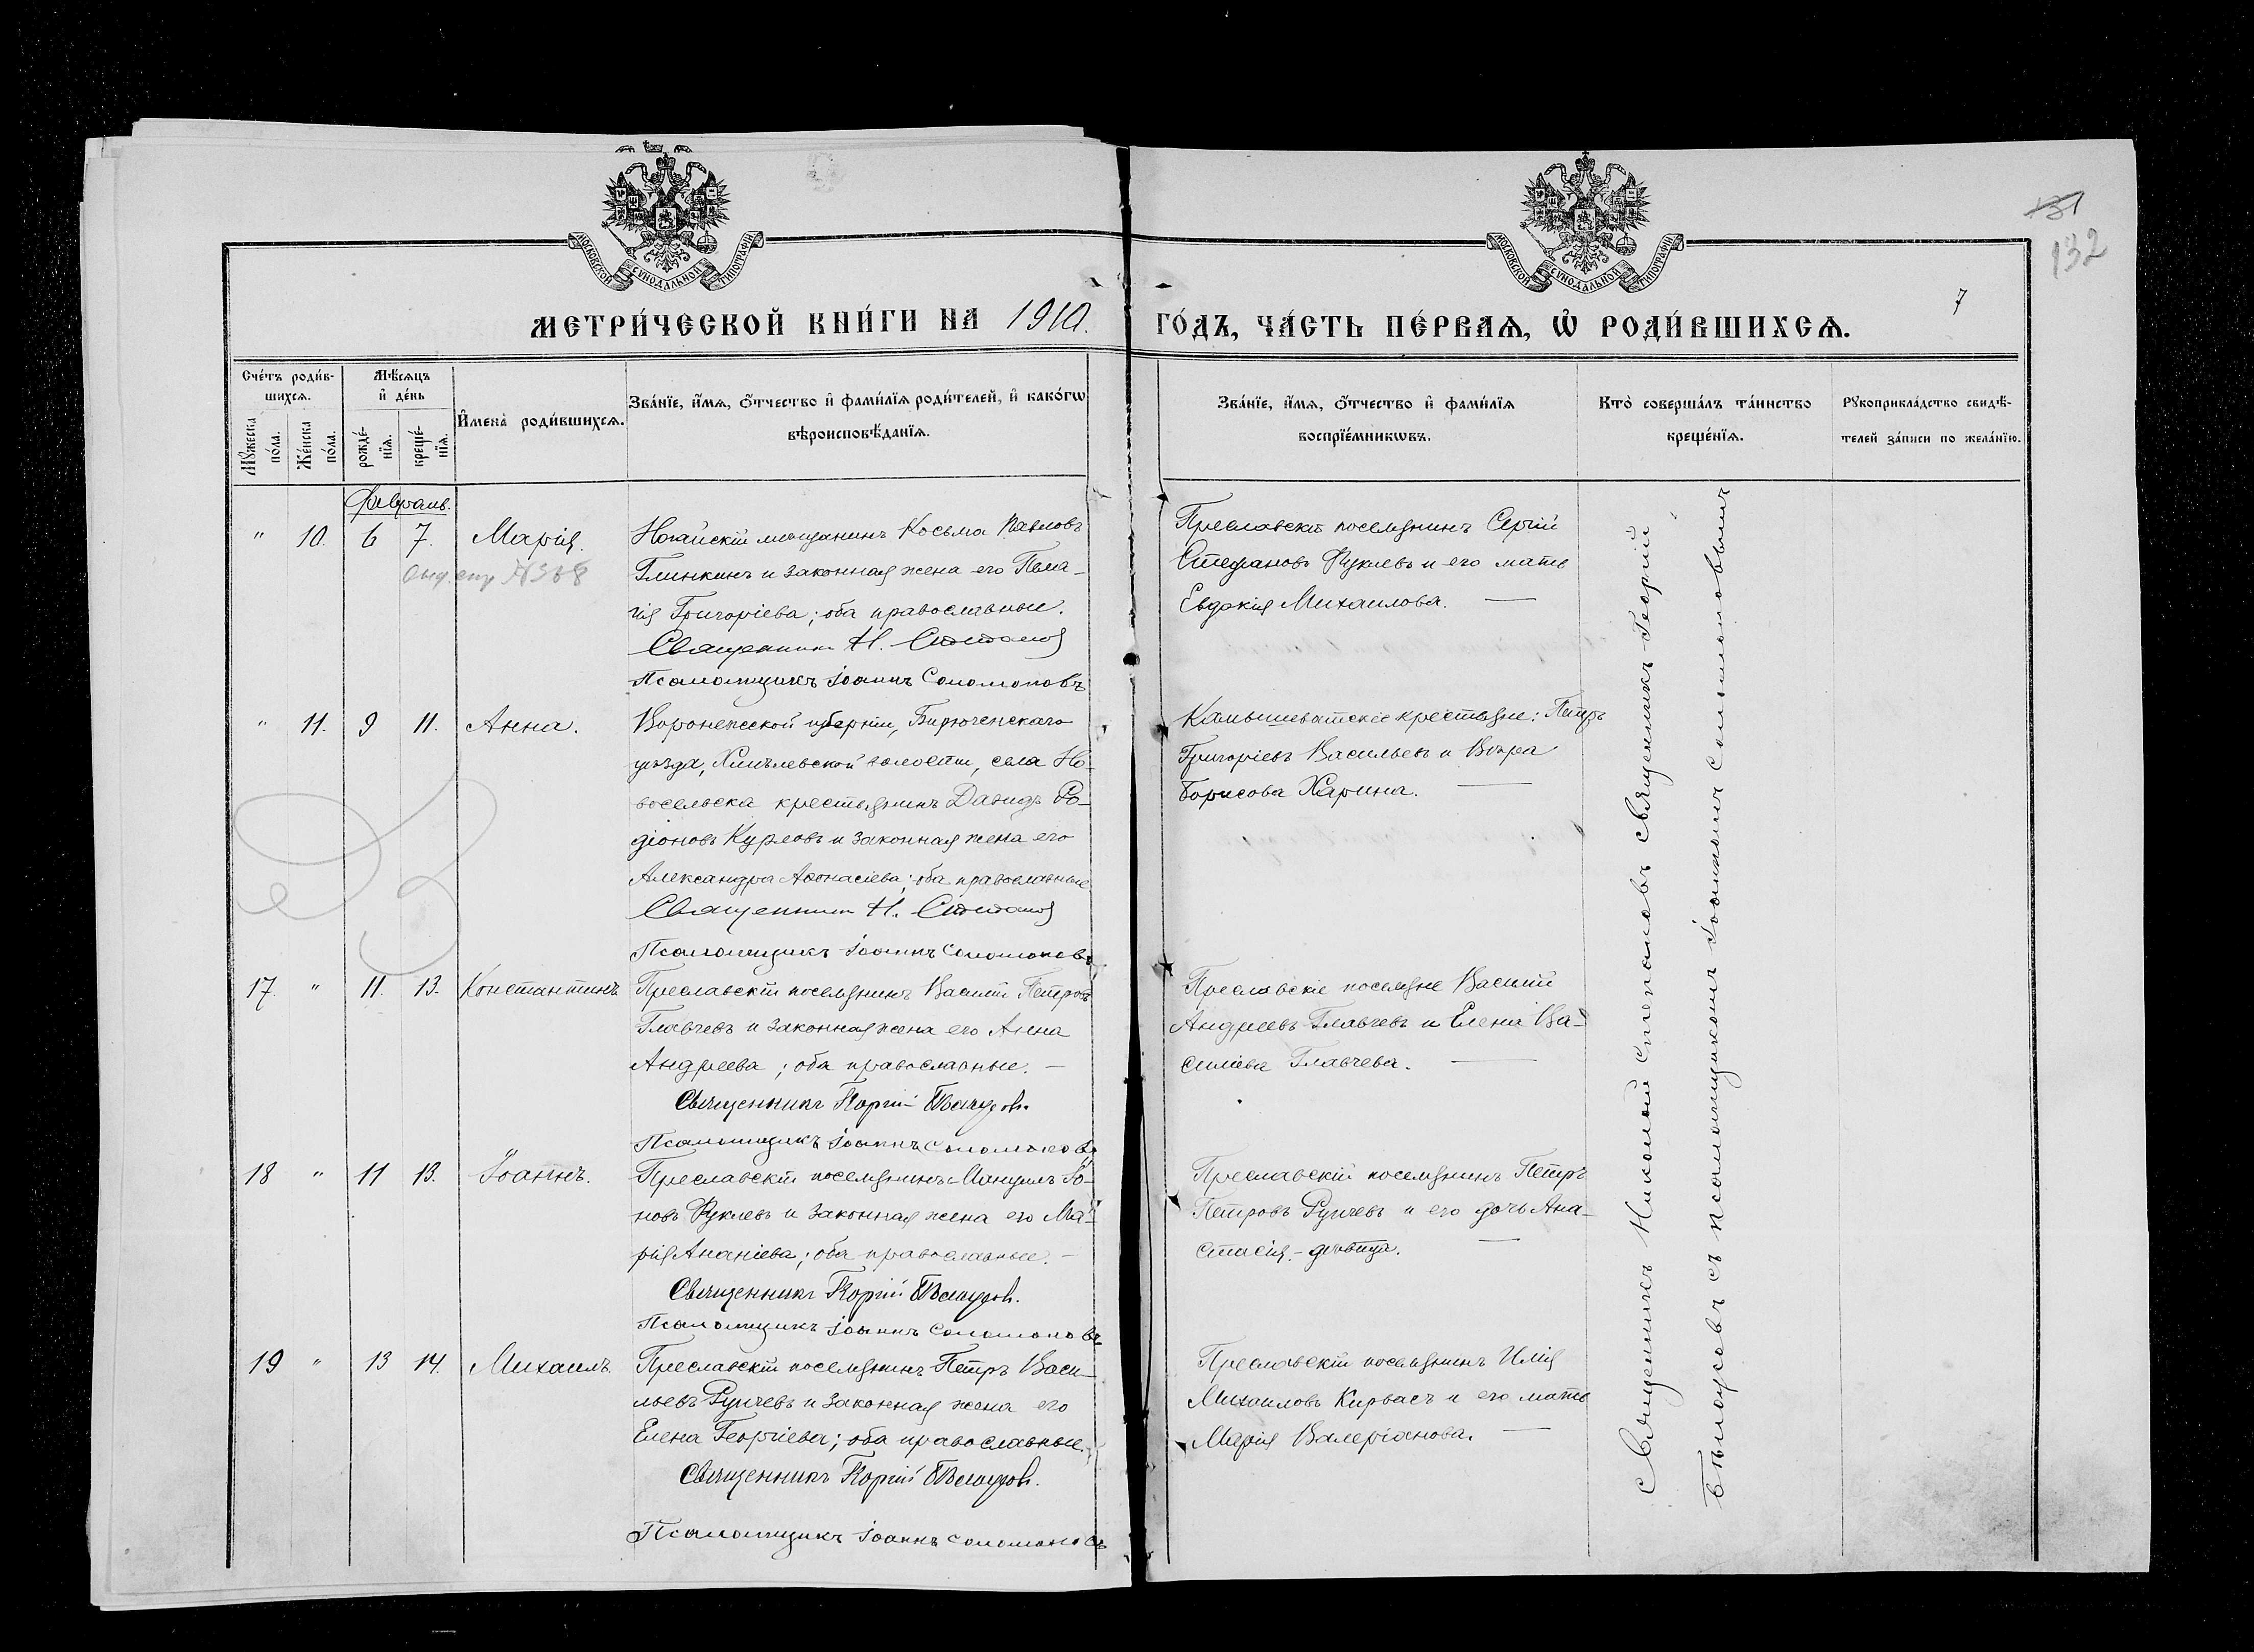 МОСКОВСКОЙ СѴНОДАЛЬНОЙ ТИПОГРАФІИ
МОСКОВСКОЙ СѴНОДАЛЬНОЙ ТИПОГРАФІИ
131
132
7
МЕТРИ́ЧЕСКОЙ КНИ́ГИ НА 1910.
ГО́ДЪ, ЧА́СТЬ ПЕ́РВАѦ, Ѡ҆ РОДИ́ВШИХСѦ.
Сче́тъ роди́в-
шихсѧ.
Мꙋ́жеска по́ла.
Же́нска по́ла.
Мѣ́сѧцъ
и҆ де́нь
рожде́-
нїѧ.
креще́-
нїѧ.
И҆мена̀ роди́вшихсѧ.
Зва́нїе, и҆́мѧ, ѻ҆́тчество и҆ фами́лїѧ роди́телей, и҆ како́гѡ
вѣроисповѣ́данїѧ.
Зва́нїе, и҆́мѧ, ѻ҆́тчество и҆ фами́лїѧ
воспрїе́мникѡвъ.
Кто̀ соверша́лъ та́инство
креще́нїѧ.
Рꙋкоприкла́дство свидѣ́-
телей за́писи по жела́нїю.
Февраль.
" 10. 6 7. Марія.
№ 368
Ногайскій мѣщанинъ Косьма Павловъ
Глинкинъ и законная жена его Пела-
гія Григоріева; оба православные.
Священникъ Н. Степановъ
Псаломщикъ Іоаннъ Соломоновъ
Преславскій поселянинъ Сергій
Стефановъ Фуклевъ и его мать
Евдокія Михаилова.
" 11. 9 11. Анна.
Воронежской губерніи, Бирюченскаго
уѣзда, Хмѣлевской волости, села Но-
восельска крестьянинъ Давидъ Ро-
діоновъ Курловъ и законная жена его
Александра Аѳонасіева; оба православные
Священникъ Н. Степановъ
Псаломщикъ Іоаннъ Соломоновъ
Камышеватскіе крестьяне: Петръ
Григоріевъ Васильевъ и Вѣра
Борисова Харина.
17. " 11. 13. Константинъ
Преславскій поселянинъ Василій Петровъ
Главчевъ и законная жена его Анна
Андреева; оба православные.
Священникъ Георгій
Псаломщикъ Іоаннъ Соломоновъ
Преславскіе поселяне Василій
Андреевъ Главчевъ и Елена Ва-
силіева Главчева.
18 " 11 13. Іоаннъ.
Преславскій поселянинъ Мануилъ Іо-
новъ Фуклевъ и законная жена его Ма-
рія Ананіева; оба православные.
Священникъ Георгій
Псаломщикъ Іоаннъ Соломоновъ
Преславскій поселянинъ Петръ
Петровъ Рупчевъ и его дочь Ана-
стасія - дѣвица.
19 " 13 14. Михаилъ.
Преславскій поселянинъ Петръ Васи-
льевъ Рупчевъ и законная жена его
Елена Георгіева; оба православные.
Священникъ Георгій
Псаломщикъ Іоаннъ Соломоновъ
Преславскій поселянинъ Илія
Михаиловъ Кирвасъ и его мать
Марія Валеріанова.
Священникъ Николай Степановъ священникъ Георгій
съ псаломщикомъ Іоанномъ Соломоновымъ